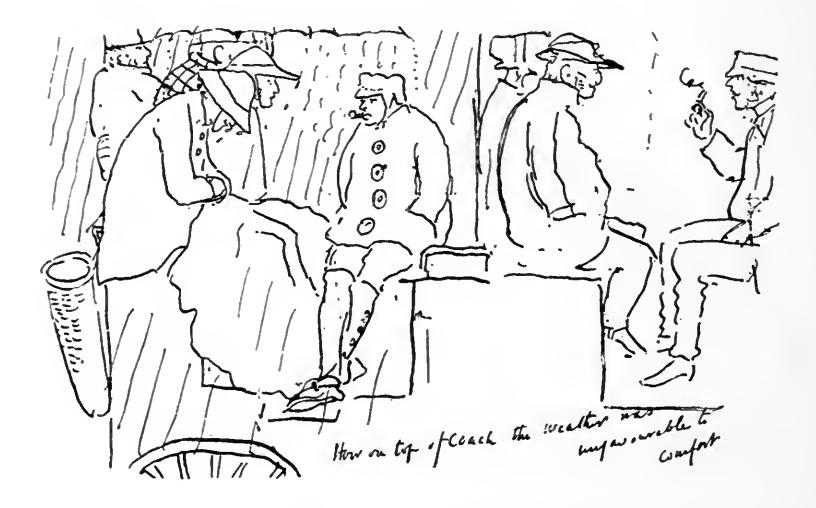 How on top of Coach the weather was
unfavourable to
comfort